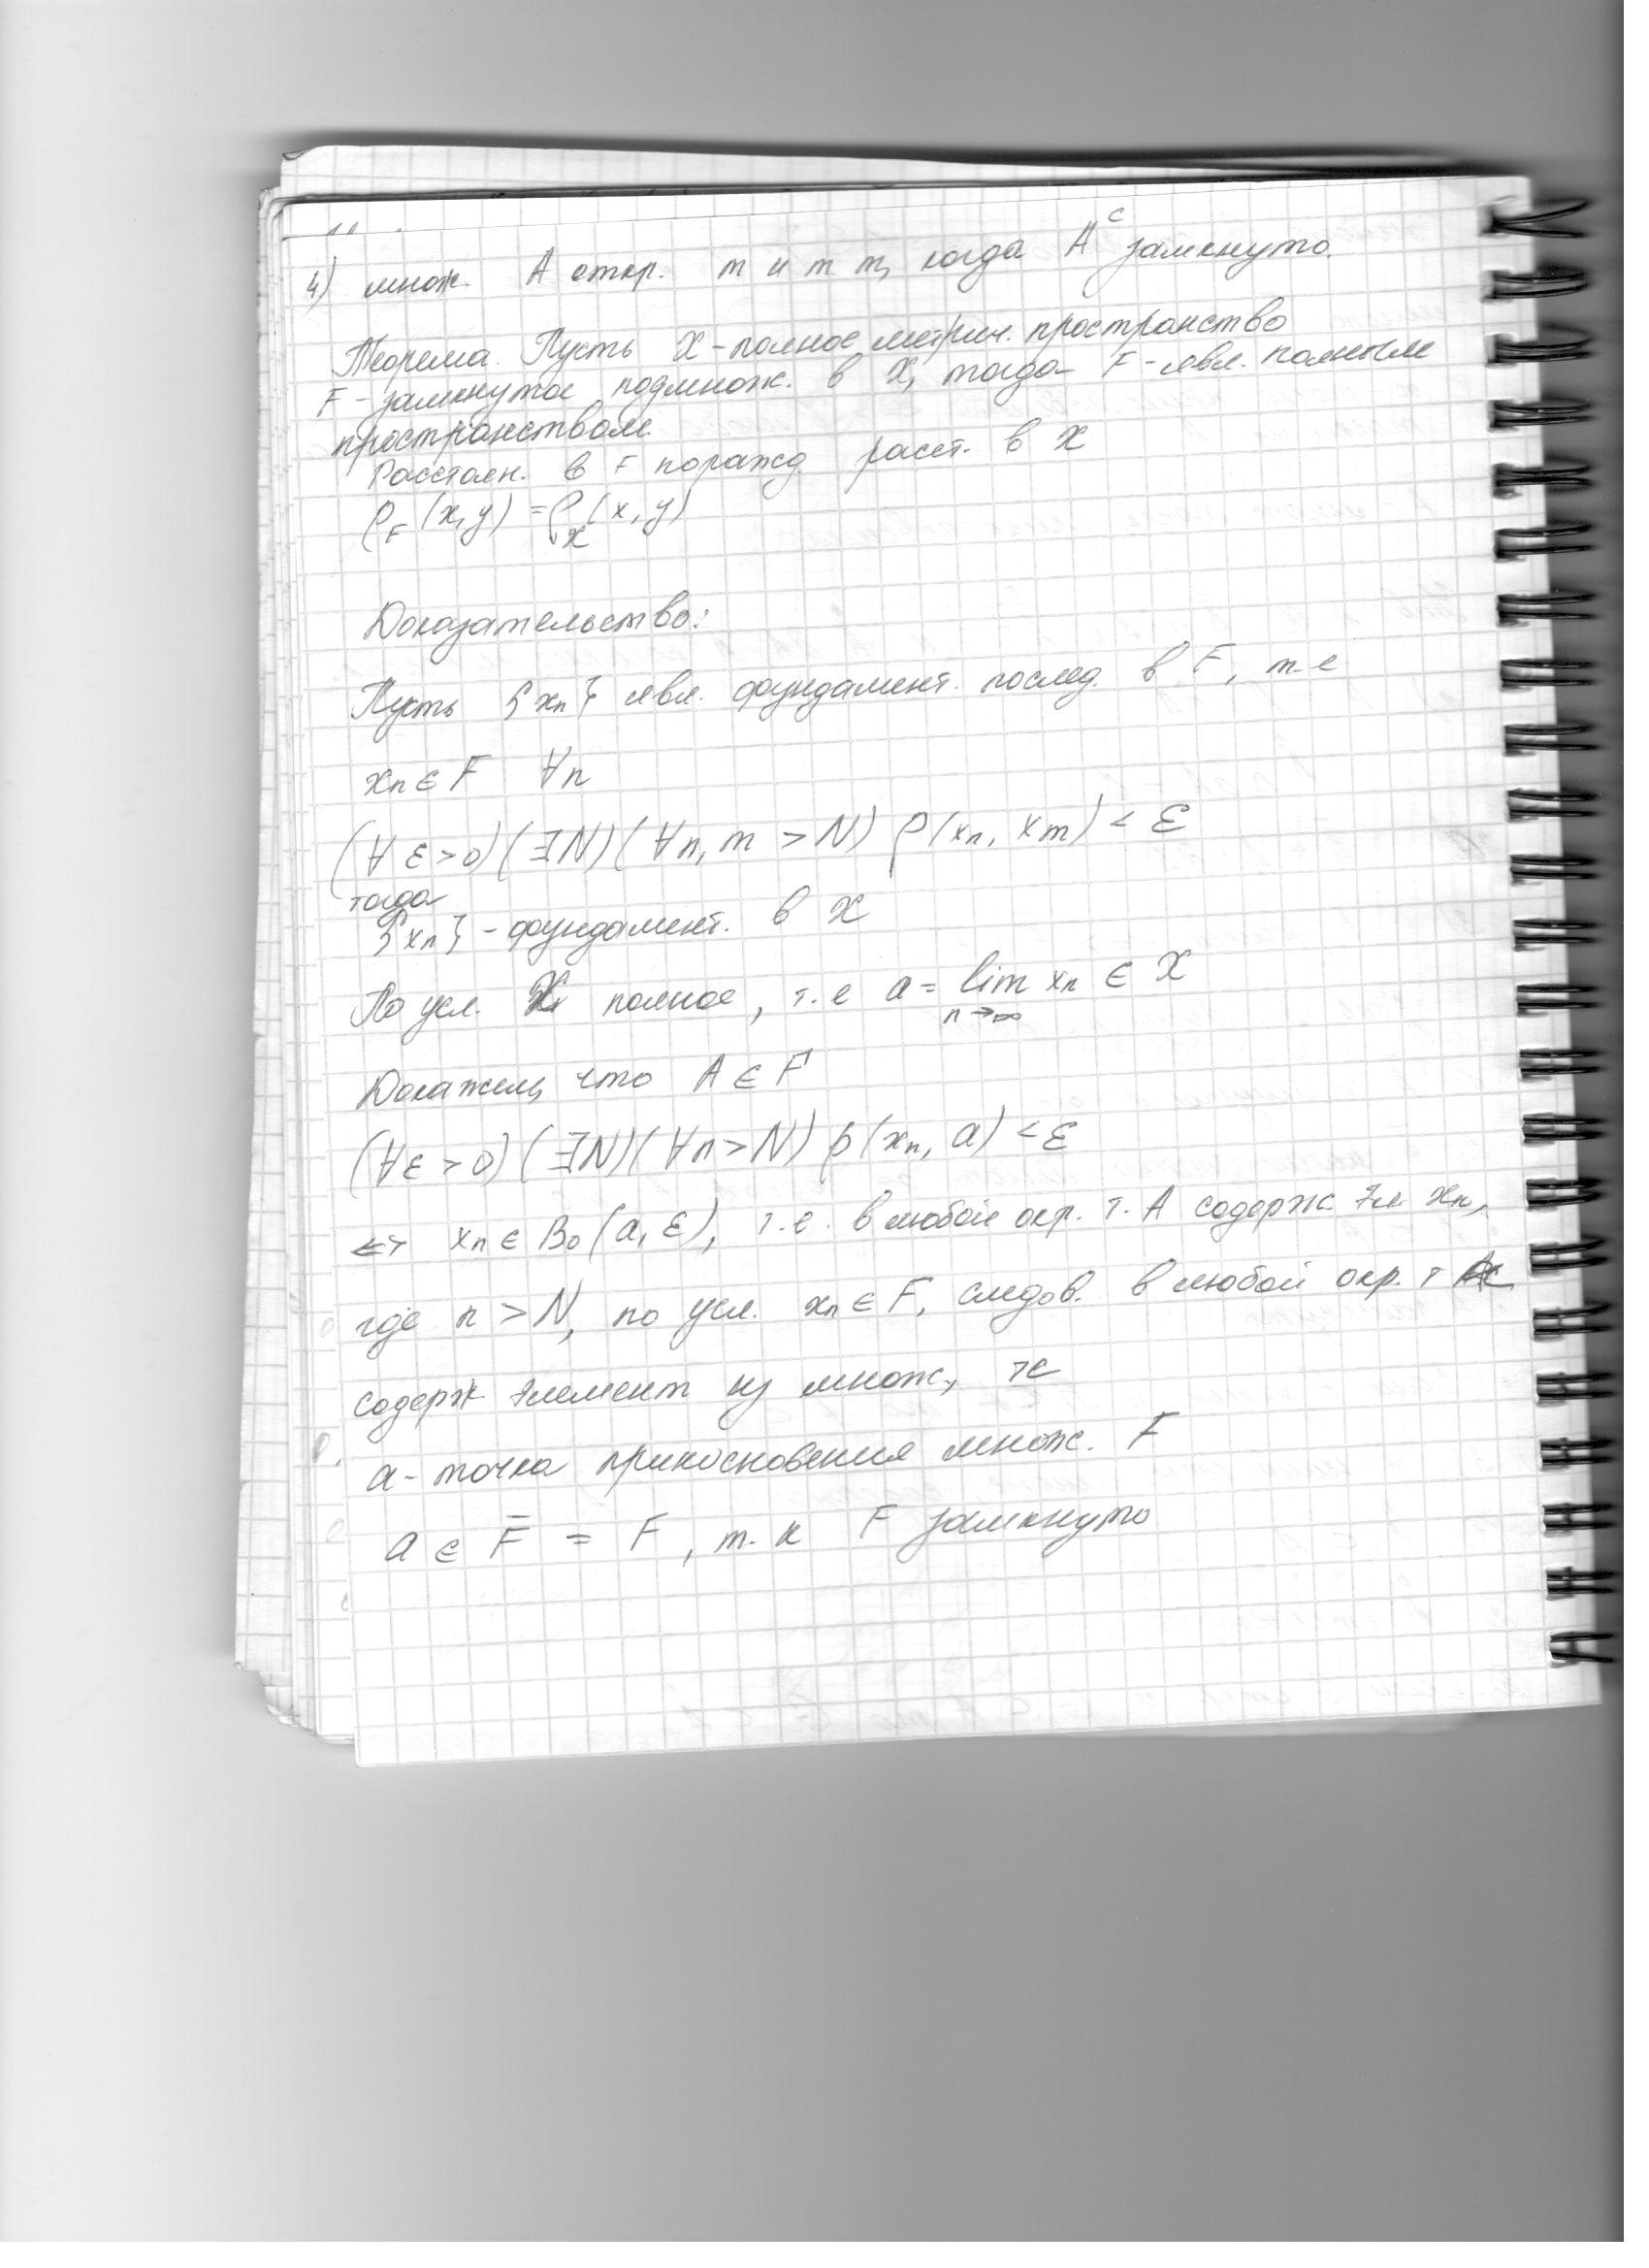 4) множ. A откр. т и т т, когда Aᶜ замкнуто.
Теорема. Пусть X - полное метрич. пространство
F - замкнутое подмнож. в X, тогда F - явл. полным
пространством.
Расстоян. в F поражд. расст. в X
ρ_F (x, y) = ρ_X (x, y)
Доказательство:
Пусть {xₙ} явл. фундамент. послед. в F, т.е
xₙ ∈ F ∀n
(∀ε>0)(∃N)(∀n, m > N) ρ(xₙ, xₘ) < ε
тогда
{xₙ} - фундамент. в X
По усл. X полное, т.е a = lim xₙ ∈ X
n→∞
Докажем, что A ∈ F
(∀ε>0)(∃N)(∀n>N) ρ(xₙ, a) < ε
<=> xₙ ∈ B₀(a, ε), т.е. в любой окр. т. A содерж. эл xₙ,
где n > N, по усл. xₙ ∈ F, следов. в любой окр. т
содерж элемент из множ.,
a - точка прикосновения множ. F
a ∈ F̄ = F, т.к F замкнуто